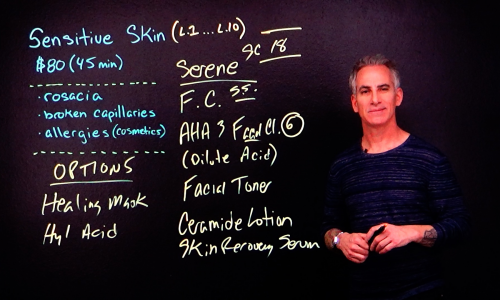 Sensitive Skin (L.1 ... L.10)
$80 (45 min)
· rosacia
· broken capillaries
· allergies (cosmetics)
OPTIONS
Healing Mask
Hyl Acid
18
Serene
F.C.
AHA 3 Facial Cl. 6
(Dilute Acid)
Facial Toner
Ceramide Lotion
Skin Recovery Serum